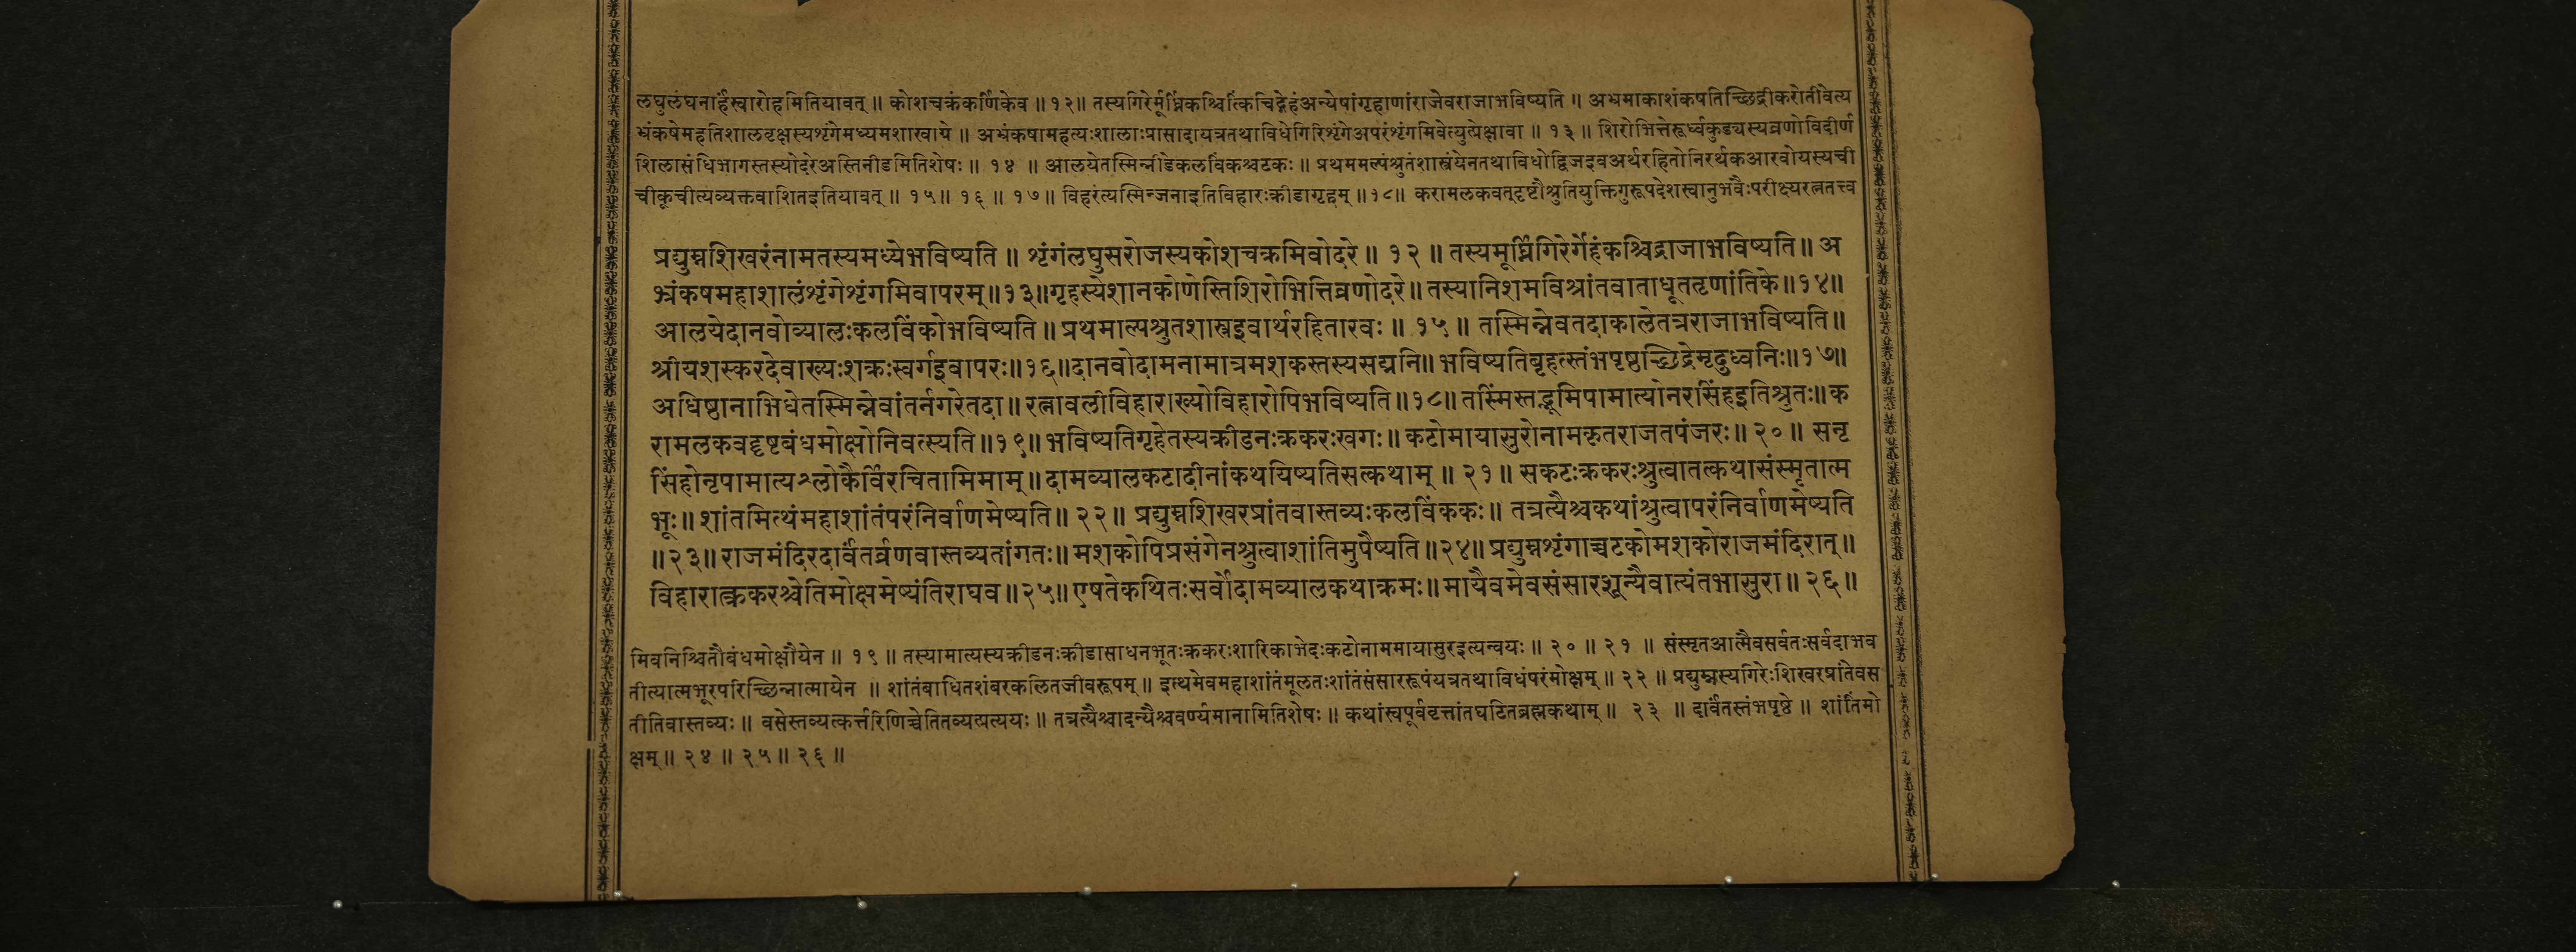 लघुलंघनार्हंस्वारोहमितियावत् ॥ कोशचक्रंकर्णिकेव ॥१२॥ तस्यगिरेर्मूर्ध्निकश्चित्किंचिद्गेहंअन्येषांगृहाणांराजेवराजाभविष्यति ॥ अभ्रमाकाशंकषतिच्छिद्रीकरोतीवेत्य
भ्रंकषेमहतिशालवृक्षस्यशृंगेमध्यमशाखाग्रे ॥ अभ्रंकषामहत्यःशालाःप्रासादायत्रतथाविधेगिरिशृंगेअपरंशृंगमिवेत्युत्प्रेक्षावा ॥ १३ ॥ शिरोभित्तेरूर्ध्वकुड्यस्यव्रणोविदीर्ण
शिलासंधिभागस्तस्योदरेअस्तिनीडमितिशेषः ॥ १४ ॥ आलयेतस्मिन्नीडेकलविंकश्चटकः ॥ प्रथममल्पंश्रुतंशास्त्रंयेनतथाविधोद्विजइवअर्थरहितोनिरर्थकआरवोयस्यची
चीकूचीत्यव्यक्तवाशितइतियावत् ॥ १५॥ १६ ॥ १७॥ विहरंत्यस्मिन्जनाइतिविहारःक्रीडागृहम् ॥१८॥ करामलकवत्दृष्टौश्रुतियुक्तिगुरूपदेशस्वानुभवैःपरीक्ष्यरत्नतत्त्व
प्रद्युम्नशिखरंनामतस्यमध्येभविष्यति ॥ शृंगंलघुसरोजस्यकोशचक्रमिवोदरे ॥ १२ ॥ तस्यमूर्ध्निगिरेर्गेहंकश्चिद्राजाभविष्यति ॥ अ
भ्रंकषमहाशालंशृंगेशृंगमिवापरम् ॥१३॥गृहस्येशानकोणेस्तिशिरोभित्तिव्रणोदरे ॥ तस्यानिशमविश्रांतवाताधूततृणांतिके ॥१४॥
आलयेदानवोव्यालःकलविंकोभविष्यति ॥ प्रथमाल्पश्रुतशास्त्रइवार्थरहितारवः ॥ १५ ॥ तस्मिन्नेवतदाकालेतत्रराजाभविष्यति ॥
श्रीयशस्करदेवाख्यःशक्रःस्वर्गइवापरः ॥१६॥दानवोदामनामात्रमशकस्तस्यसद्मनि ॥ भविष्यतिबृहत्स्तंभपृष्ठच्छिद्रेमृदुध्वनिः ॥१७॥
अधिष्ठानाभिधेतस्मिन्नेवांतर्नगरेतदा ॥ रत्नावलीविहाराख्योविहारोपिभविष्यति ॥१८॥ तस्मिंस्तद्भूमिपामात्योनरसिंहइतिश्रुतः ॥ क
रामलकवद्दृष्टबंधमोक्षोनिवत्स्यति ॥१९॥ भविष्यतिगृहेतस्यक्रीडनःक्रकरःखगः ॥ कटोमायासुरोनामकृतराजतपंजरः ॥ २० ॥ सनृ
सिंहोनृपामात्यश्लोकैर्विरचितामिमाम् ॥ दामव्यालकटादीनांकथयिष्यतिसत्कथाम् ॥ २१ ॥ सकटःक्रकरःश्रुत्वातत्कथासंस्मृतात्म
भूः ॥ शांतमित्थंमहाशांतंपरंनिर्वाणमेष्यति ॥ २२ ॥ प्रद्युम्नशिखरप्रांतवास्तव्यःकलविंककः ॥ तत्रत्यैश्चकथांश्रुत्वापरंनिर्वाणमेष्यति
॥२३॥ राजमंदिरदार्वंतर्व्रणवास्तव्यतांगतः ॥ मशकोपिप्रसंगेनश्रुत्वाशांतिमुपैष्यति ॥२४॥ प्रद्युम्नशृंगाच्चटकोमशकोराजमंदिरात् ॥
विहारात्क्रकरश्चेतिमोक्षमेष्यंतिराघव ॥२५॥ एषतेकथितःसर्वोदामव्यालकथाक्रमः ॥ मायैवमेवसंसारशून्यैवात्यंतभासुरा ॥ २६ ॥
मिवनिश्चितौबंधमोक्षौयेन ॥ १९ ॥ तस्यामात्यस्यक्रीडनःक्रीडासाधनभूतःक्रकरःशारिकाभेदःकटोनाममायासुरइत्यन्वयः ॥ २० ॥ २१ ॥ संस्मृतआत्मैवसर्वतःसर्वदाभव
तीत्यात्मभूरपरिच्छिन्नात्मायेन ॥ शांतंबाधितशंबरकलितजीवरूपम् ॥ इत्थमेवमहाशांतंमूलतःशांतंसंसाररूपंयत्रतथाविधंपरंमोक्षम् ॥ २२ ॥ प्रद्युम्नस्यगिरेःशिखरप्रांतेवस
तीतिवास्तव्यः ॥ वसेस्तव्यत्कर्त्तरिणिच्चेतितव्यत्प्रत्ययः ॥ तत्रत्यैश्चादन्यैश्चवर्ण्यमानामितिशेषः ॥ कथांस्वपूर्ववृत्तांतघटितब्रह्मकथाम् ॥ २३ ॥ दार्वंतस्तंभपृष्ठे ॥ शांतिंमो
क्षम् ॥ २४ ॥ २५ ॥ २६ ॥